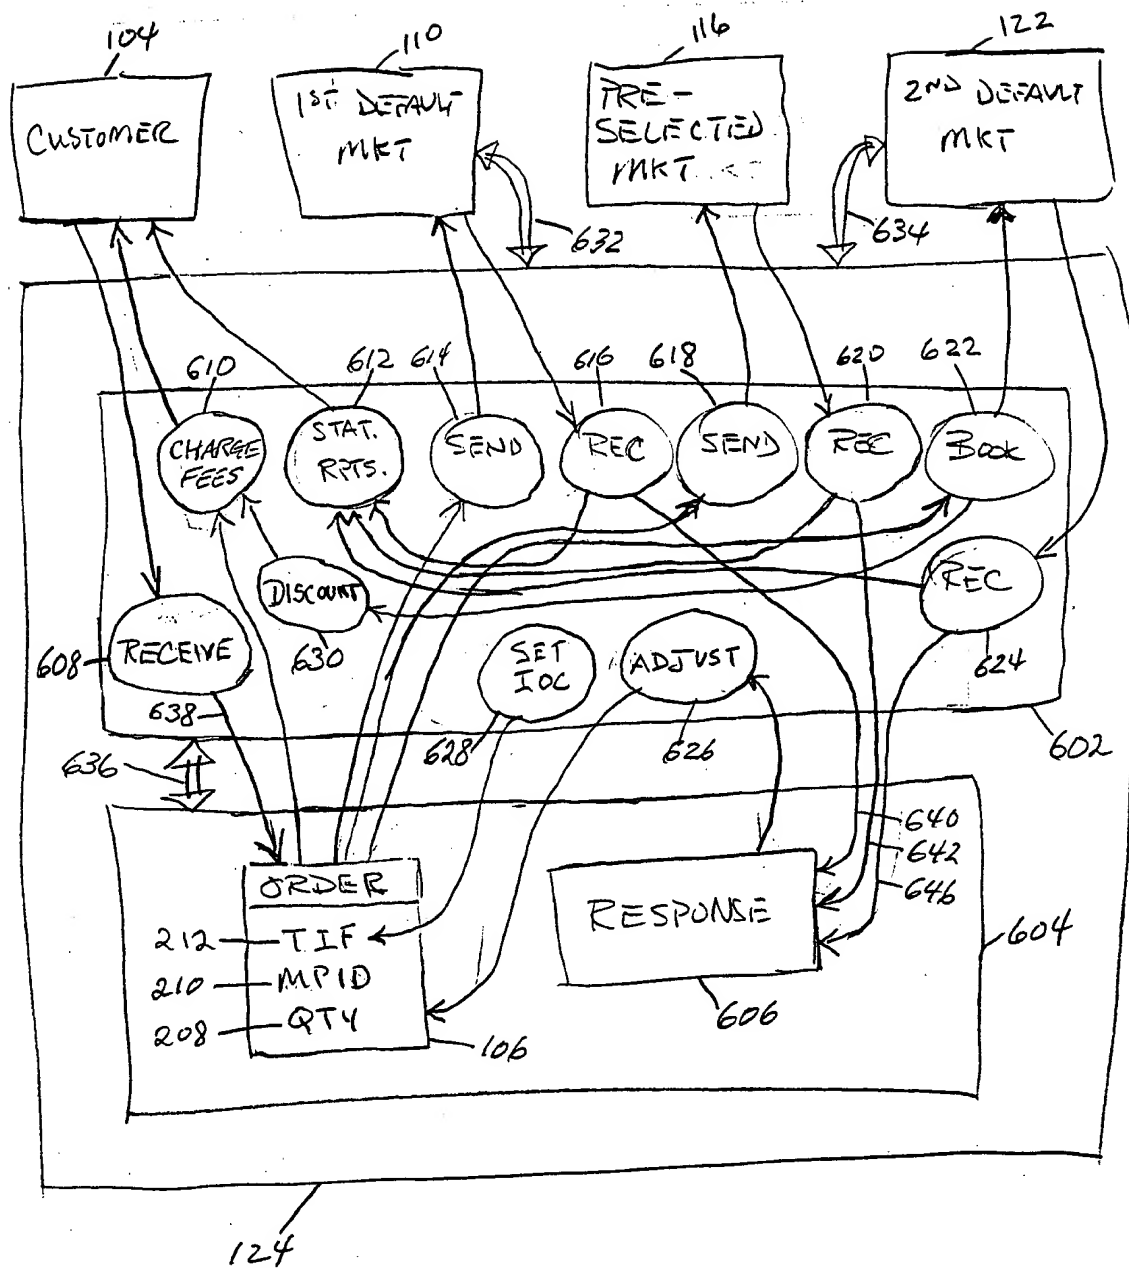 104
110
116
122
CUSTOMER
1ST DEFAULT
MKT
PRE-
SELECTED
MKT
2ND DEFAULT
MKT
632
634
610
612
614
616
618
620
622
CHARGE
FEES
STAT.
RPTS.
SEND
REC
SEND
REC
BOOK
DISCOUNT
REC
608
RECEIVE
630
SET
IOC
ADJUST
624
638
636
628
626
602
640
642
646
ORDER
212
TIF
210
MPID
208
QTY
RESPONSE
604
606
106
124